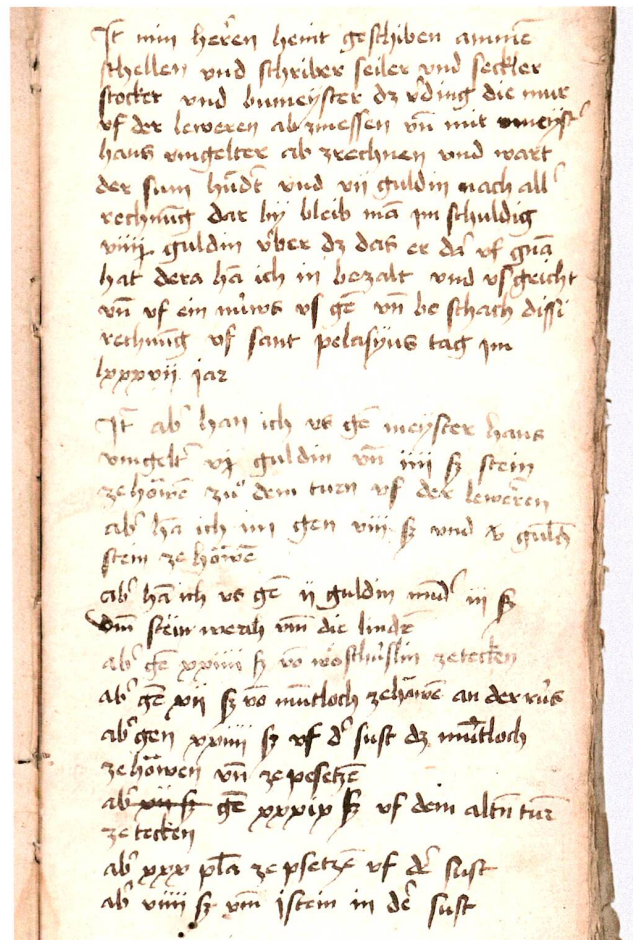 It min herren heint geschiben ammē
schellen und schriber seiler und seckler
stocker und bumeyster dz v'ding die mur
uf der leweren ab zmessen vn̄ mit meyst'
hans vmgelter ab zrechnen und wart
der sum hūdt und vii guldin nach all'
rechnūg dar by bleib mā im schuldig
viiij guldin vber dz das er dā uf gnā
hat dera hā ich in bezalt und us gricht
vn̄ uf ein nüws us gē vn̄ be schach dissi
rechnūg uf sant pelasyus tag im
lxxxvii jar
It ab' han ich us gē meyster hans
vmgelt' vj guldin vn̄ iiii ß stein
ze höwē zů dem turn uf der lewerēn
ab' hā ich im gen viii ß und x guld
stein ze höwē
ab' hā ich us gē ii guldin mīd' iii ß
vm stein werch vm die lindē
ab' gē xxiiii ß vō zetecken
ab' gē xii ß vō mūtloch zehöwē an der rüs
ab' gen xxiiii ß uf d' sust dz mūtloch
ze höwen vn̄ ze pesetzē
ab' xii ß gē xxxix ß uf dem altn turē
ze tecken
ab' xxx pla ze psetzē uf de' sust
ab' viiii ß vm istein in de' sust